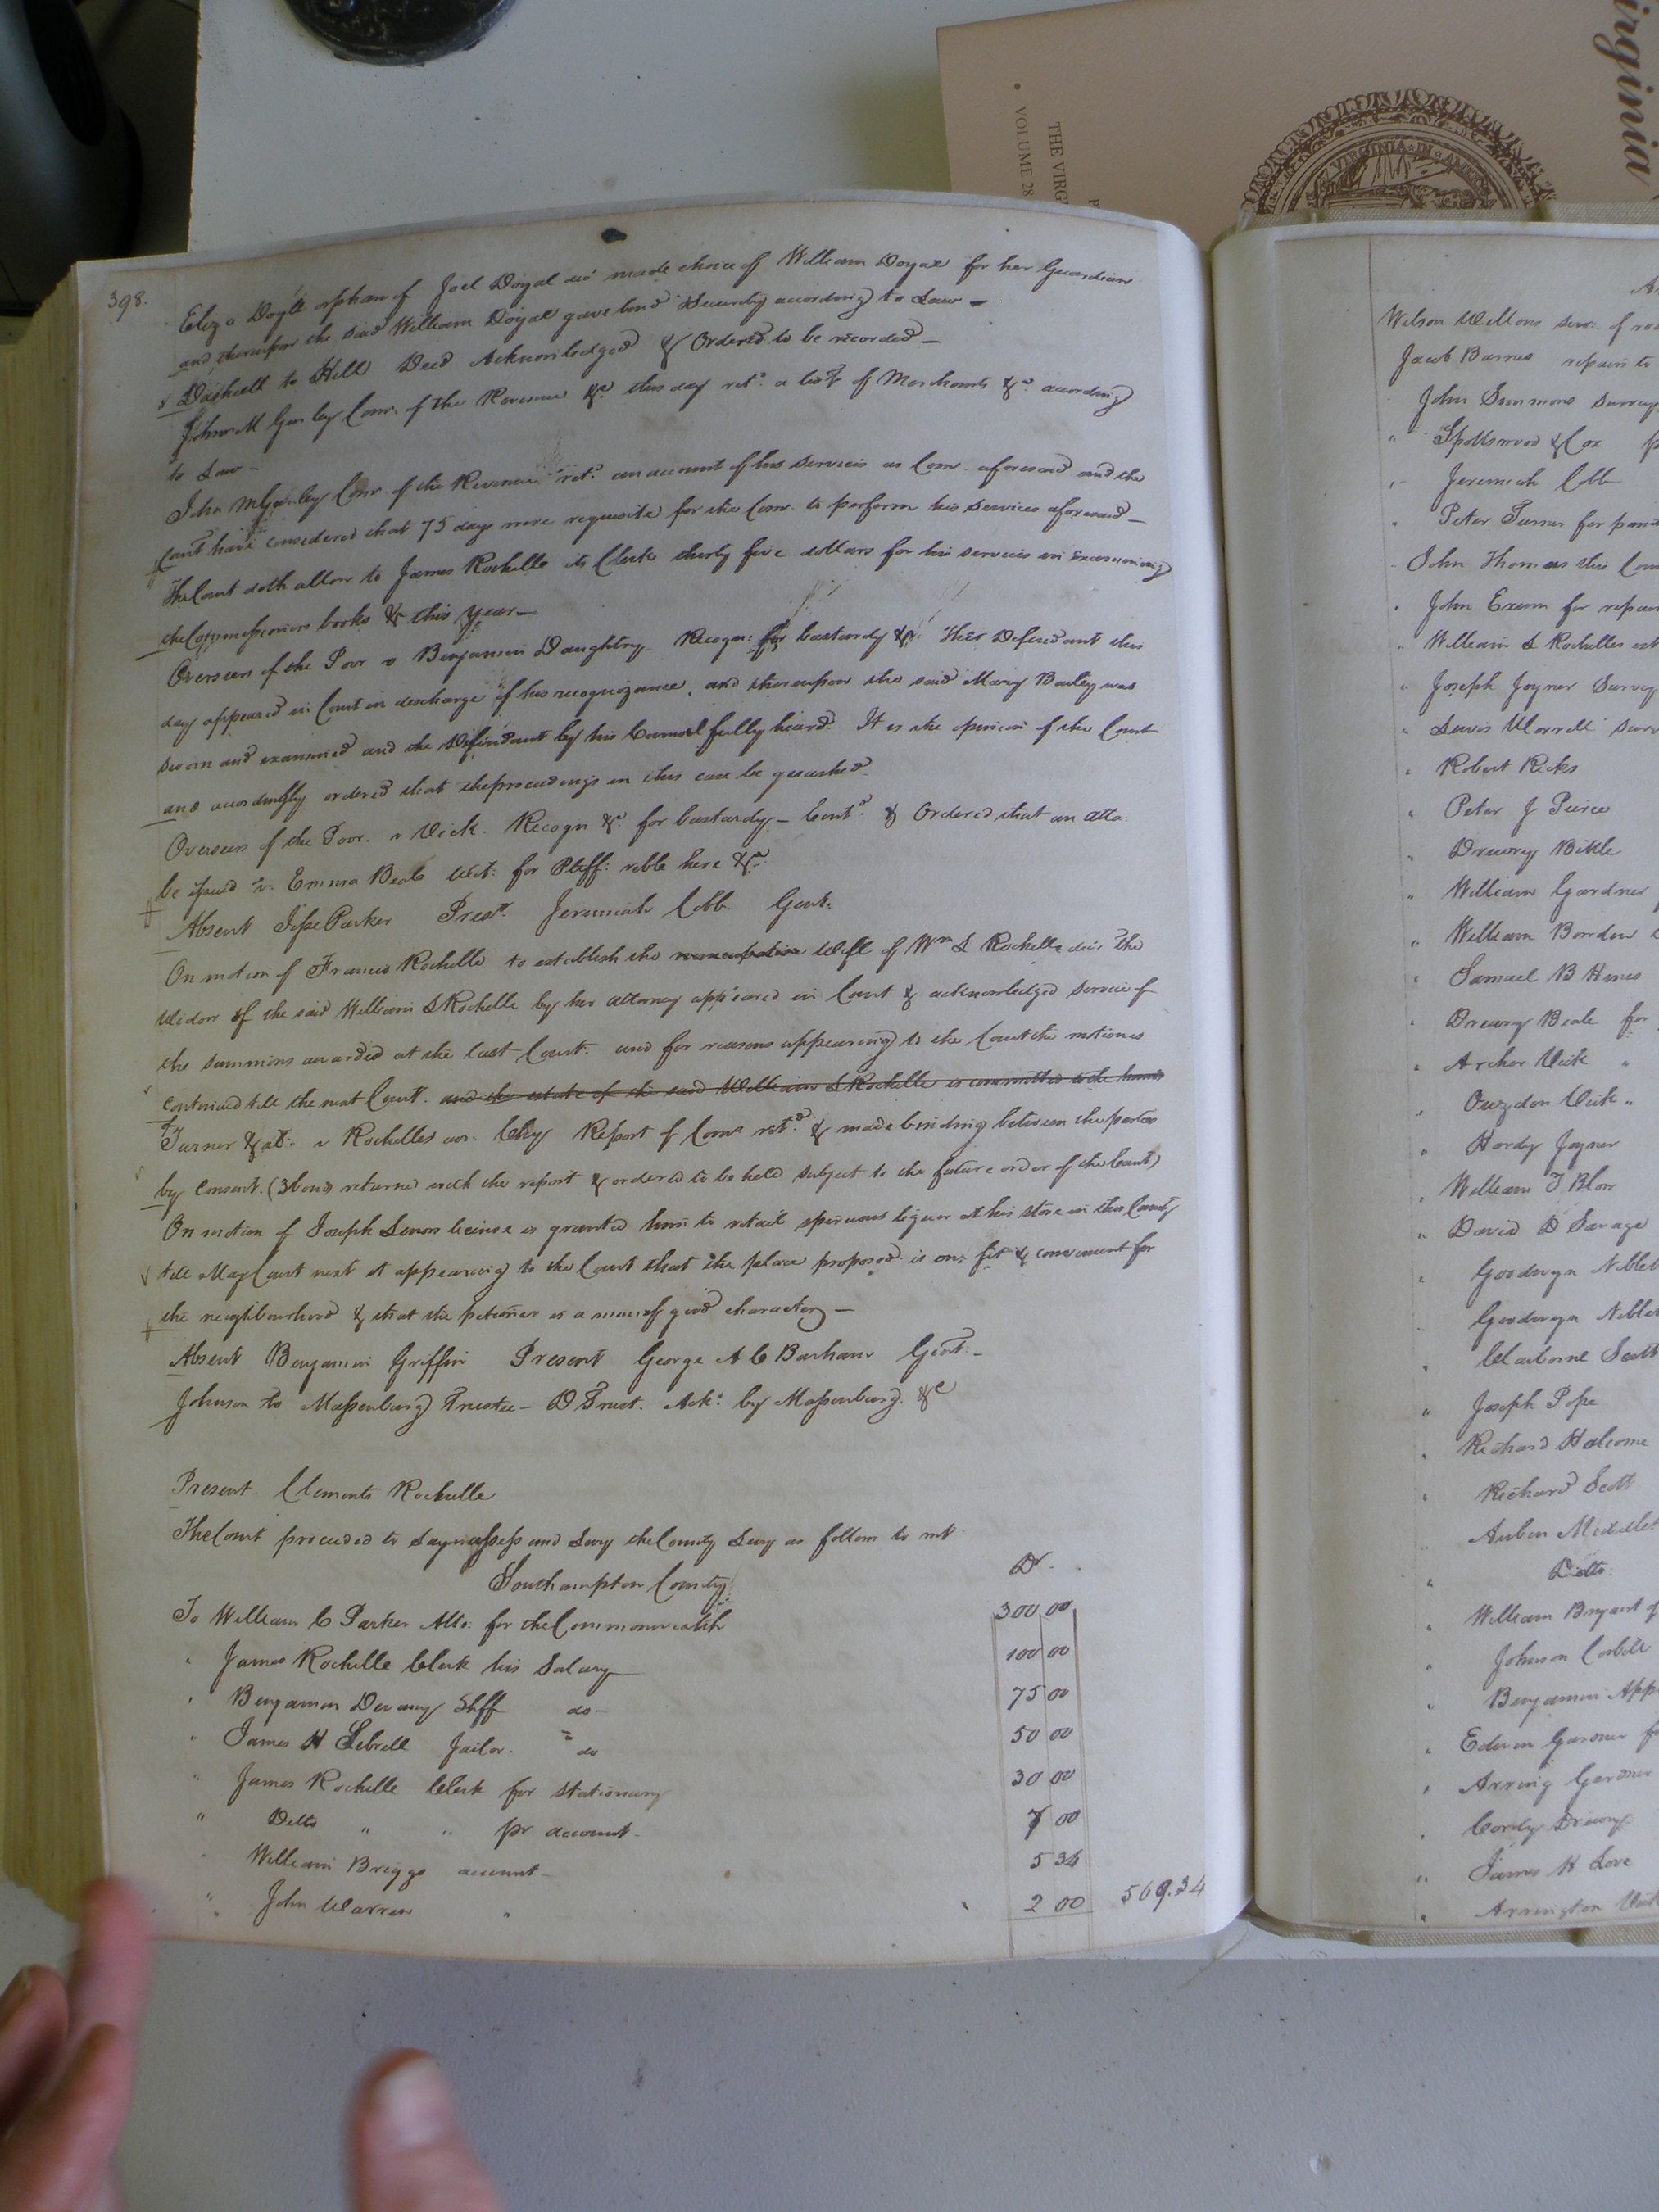 398.
Eliza Doyle orphan of Joel Doyal decd made choice of William Doyal for her Guardian
and thereupon the said William Doyal gave bond & Security according to Law —
Dashiell to Hill Deed Acknowledged & Ordered to be recorded —
John M Gurley Comr. of the Revenue &c this day retd. a list of Merchants &c. according
to Law —
John M Gurley Comr. of the Revenue retd. an account of his services as Comr. aforesaid and the
Court have considered that 75 days were requisite for the Comr. to perform his services aforesaid —
The Court doth allow to James Rochelle its Clerk thirty five dollars for his services in examining
the Commissioners books &c this year —
Overseers of the Poor v Benjamin Daughtry Recogn: for bastardy &c. The Defendant this
day appeared in Court in discharge of his recognizance, and thereupon the said Mary Bailey was
sworn and examined and the Defendant by his Counsel fully heard. It is the opinion of the Court
and accordingly ordered that the proceedings in this case be quashed
Overseers of the Poor. v Vick. Recogn &c. for bastardy — Contd. & Ordered that an atta:
be issued v. Emma Beale Wit: for Plff: retble here &c.
Absent Jesse Parker Presst. Jeremiah Cobb Gent.
On motion of Francis Rochelle to establish the Will of Wm L Rochelle decd The
Widow of the said William L Rochelle by her attorney appeared in Court & acknowledged service of
the summons awarded at the last Court. and for reasons appearing to the Court the motion is
continued till the next Court. and the estate of the said William L Rochelle is committed to the hands
Turner & al: v Rochelles Chy Report of Comr retd. & made binding between the parties
by Consent. (3 bonds returned with the report & ordered to be held subject to the future order of the Court)
On motion of Joseph Lenow license is granted him to retail spirituous liquor at his store in this County
till May Court next it appearing to the Court that the place proposed is one fit & convenient for
the neighbourhood & that the petioner is a man of good character —
Absent Benjamin Griffin Present George A C Barham Gent: —
Johnson to Massenburg Trustee — D Trust. Ack: by Massenburg. &c
Present Clements Rochelle
The Court proceeded to lay assess and Levy the County Levy as follow to wit
Southampton County Dr.
To William C Parker Atto: for the Commonwealth 300 00
" James Rochelle Clerk his Salary 100 00
" Benjamin Devany Shff do — 75 00
" James H Sebrell Jailor. do 50 00
" James Rochelle Clerk for stationary 30 00
" Ditto " " pr account — 7 00
William Briggs account — 5 34
" John Warren " 2 00 569.34
Wilson Wellons
Jacob Barnes repairs to
John Simmons Survey
" Spottswood & Cox
" Jeremiah Cobb
" Peter Turner for
John Thomas this
" John Exum for repair
" William L Rochelles est
" Joseph Joyner Survey
" Lewis Worrell Surv
" Robert Ricks
" Peter J Peirce
" Drewry Bittle
" William Gardner
" William Bowden
" Samuel B Hines
" Drewry Beale for
" Archer Vick "
" Ouzdon Vick "
" Hardy Joyner
" William T Blow
" David D Savage
" Goodwyn Niblet
" Goodwyn Niblet
" Claiborne Scott
" Joseph Pope
" Richard Holcome
" Richard Scott
Ditto
" William Bryant
" Johnson Corbitt
" Benjamin
" Edwin Gardner
" Gardner
" Cordy Drewry
" James H Love
" Arrington
irginia
THE VIRG
VOLUME 28
VIRGINIA IN